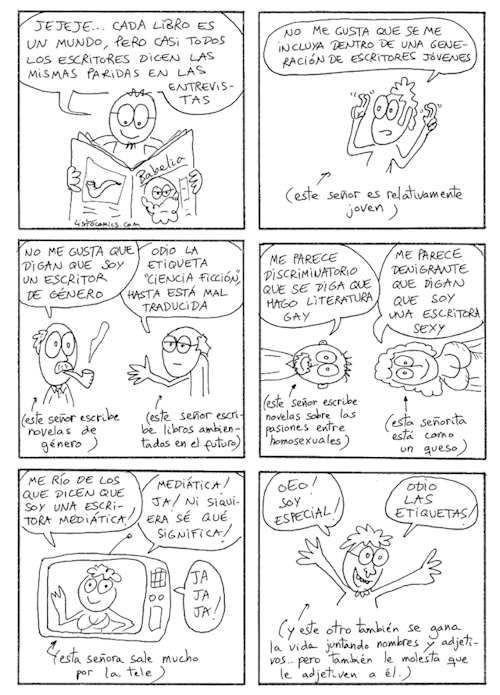 JEJEJE... CADA LIBRO ES
UN MUNDO, PERO CASI TODOS
LOS ESCRITORES DICEN LAS
MISMAS PARIDAS EN LAS
ENTREVIS-
TAS
Babelia
listocomics.com
NO ME GUSTA QUE SE ME
INCLUYA DENTRO DE UNA GENE-
RACIÓN DE ESCRITORES JÓVENES
(este señor es relativamente
joven)
NO ME GUSTA QUE
DIGAN QUE SOY
UN ESCRITOR
DE GÉNERO
ODIO LA
ETIQUETA
"CIENCIA FICCIÓN",
HASTA ESTÁ MAL
TRADUCIDA
(este señor escribe
novelas de
género)
(este señor escri-
be libros ambien-
tados en el futuro)
ME PARECE
DISCRIMINATORIO
QUE SE DIGA QUE
HAGO LITERATURA
GAY
ME PARECE
DENIGRANTE
QUE DIGAN
QUE SOY
UNA ESCRITORA
SEXY
(este señor escribe
novelas sobre las
pasiones entre
homosexuales)
(esta señorita
está como
un queso)
ME RÍO DE LOS
QUE DICEN QUE
SOY UNA ESCRI-
TORA MEDIÁTICA!
MEDIÁTICA!
JA! NI SIQUI-
ERA SÉ QUÉ
SIGNIFICA!
JA
JA
JA!
(esta señora sale mucho
por la tele)
OEO!
SOY
ESPECIAL!
ODIO
LAS
ETIQUETAS!
(y este otro también se gana
la vida juntando nombres y adjeti-
vos... pero también le molesta que
le adjetiven a él.)